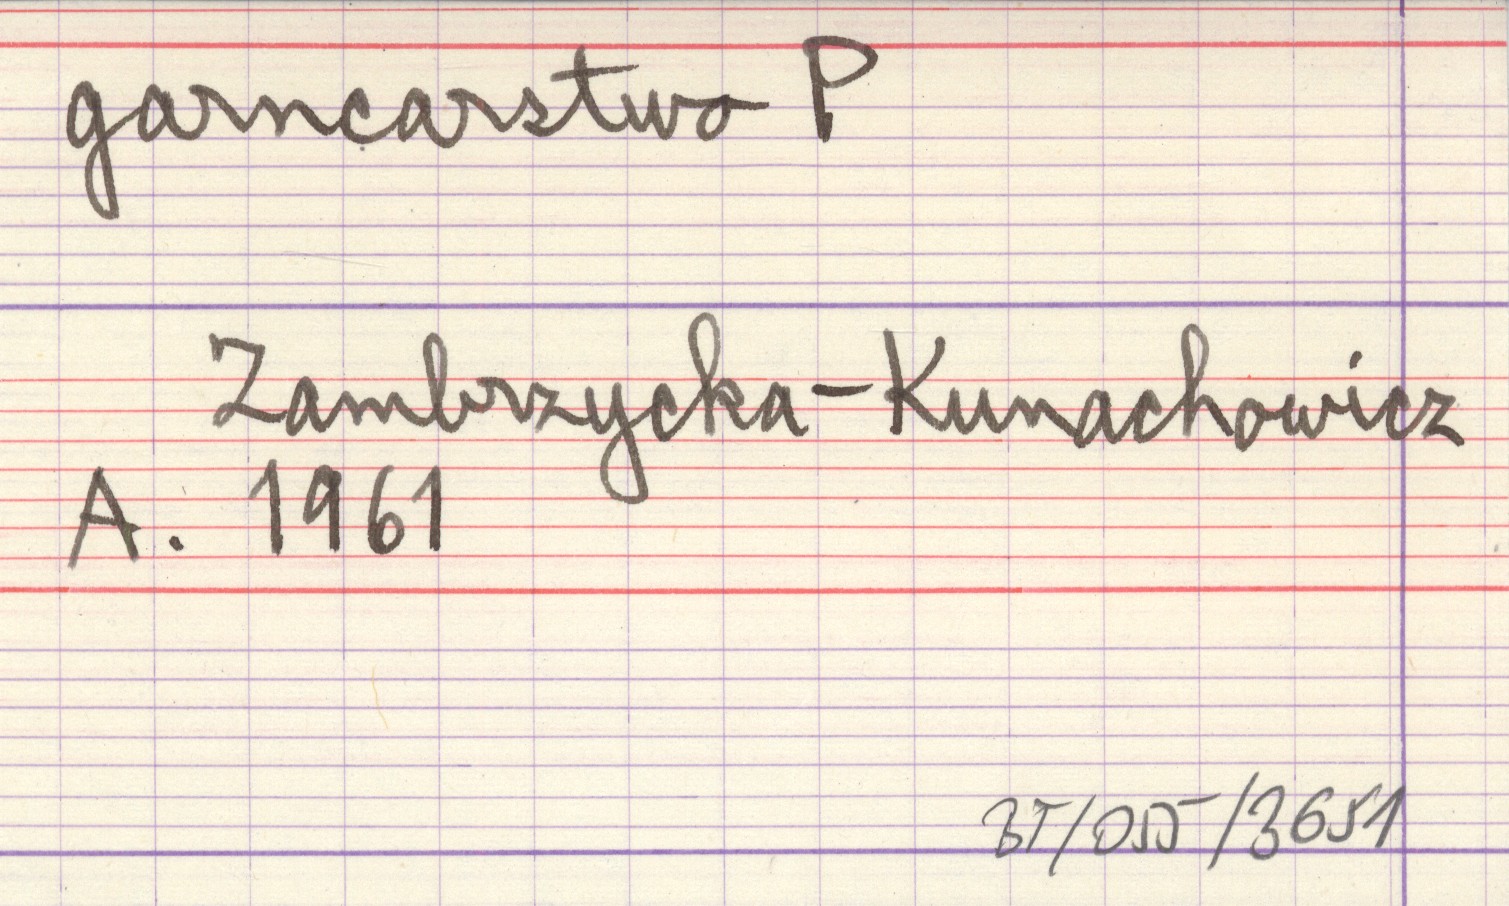 garncarstwo P
Zambrzycka-Kunachowicz
A. 1961
BT/055/3651